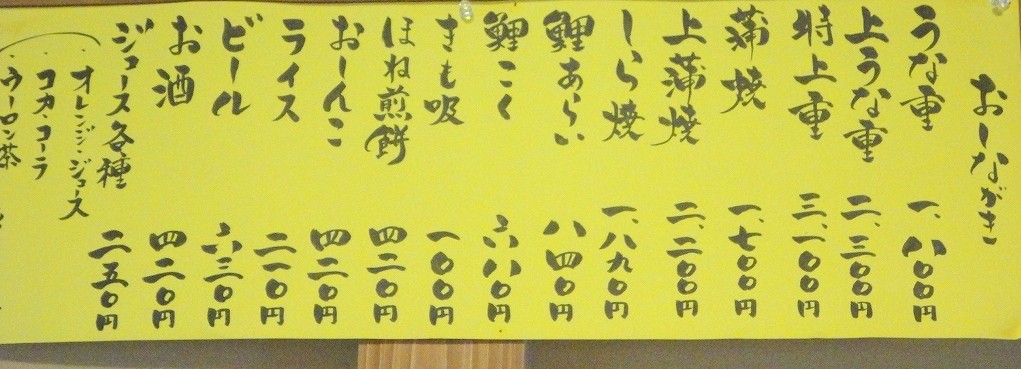 おしながき
うな重 一、八〇〇円
上うな重 二、三〇〇円
特上重 三、一〇〇円
蒲焼 一、七〇〇円
上蒲焼 二、二〇〇円
しら焼 一、八九〇円
鯉あらい 八四〇円
鯉こく 六八〇円
きも吸 一〇〇円
ほね煎餅 四二〇円
おしんこ 四二〇円
ライス 二一〇円
ビール 六三〇円
お酒 四二〇円
ジュース各種 二五〇円
オレンジ・ジュース
コカ・コーラ
ウーロン茶